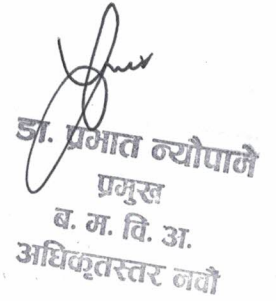 डा. प्रभात न्यौपाने
प्रमुख
ब. म. वि. अ.
अधिकृतस्तर नवौं